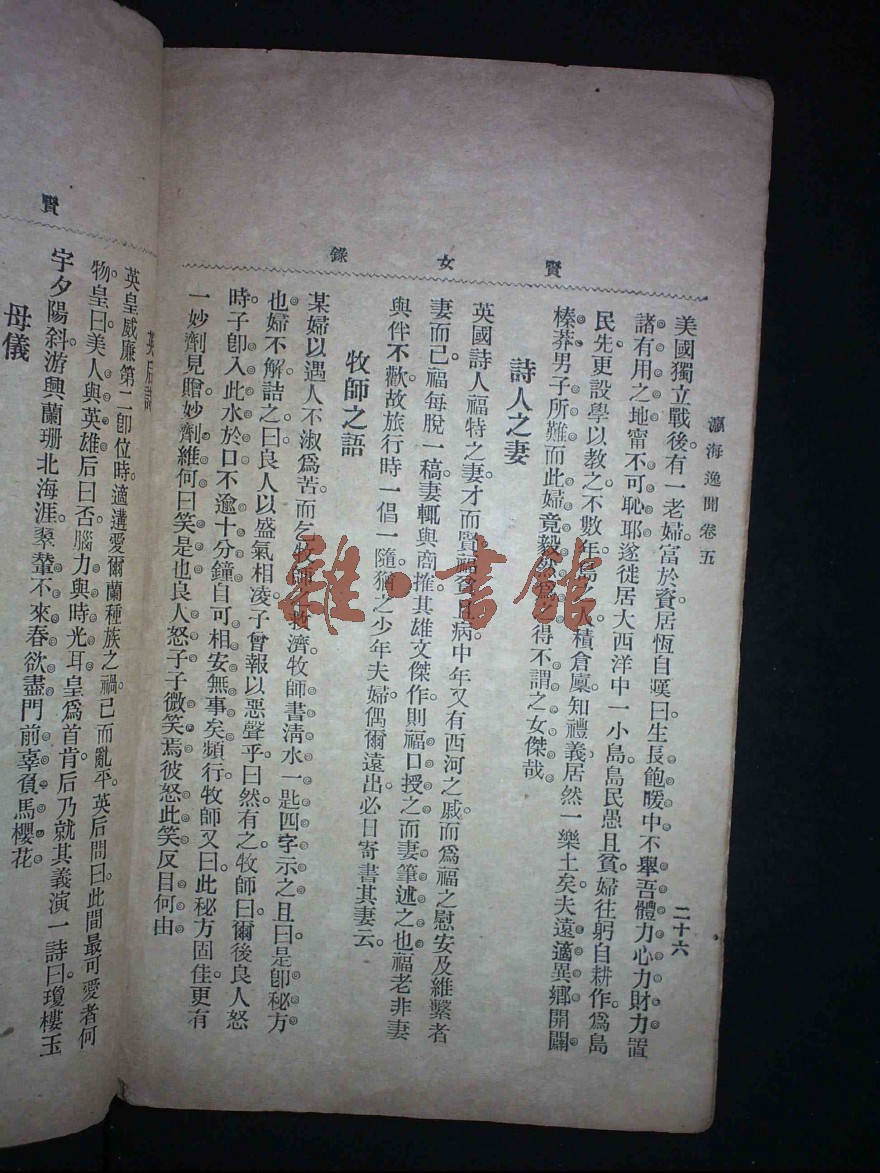 瀛海逸聞卷五
二十六
賢女錄
美國獨立戰後有一老婦富於資居恆自嘆曰生長飽暖中不舉吾體力心力財力置
諸有用之地甯不可恥耶遂徙居大西洋中一小島島民愚且貧婦往躬自耕作爲島
民先更設學以教之不數年島之人積倉廩知禮義居然一樂土矣夫遠適異鄉開闢
榛莽男子所難而此婦竟毅然爲之得不謂之女傑哉
詩人之妻
英國詩人福特之妻才而賢福貧且病中年又有西河之戚而爲福之慰安及維繫者
妻而已福每脫一稿妻輒與商推其雄文傑作則福口授之而妻筆述之也福老非妻
與伴不歡故旅行時一倡一隨猶之少年夫婦偶爾遠出必日寄書其妻云
牧師之語
某婦以遇人不淑爲苦而乞牧師救濟牧師書清水一匙四字示之且曰是卽秘方
也婦不解詰之曰良人以盛氣相凌子曾報以惡聲乎曰然有之牧師曰爾後良人怒
時子卽入此水於口不逾十分鐘自可相安無事矣頻行牧師又曰此秘方固佳更有
一妙劑見贈妙劑維何曰笑是也良人怒子子微笑焉彼怒此笑反目何由
賢
英后詩
英皇威廉第二卽位時適遘愛爾蘭種族之禍已而亂平英后問曰此間最可愛者何
物皇曰美人與英雄后曰否腦力與時光耳皇爲首肯后乃就其義演一詩曰瓊樓玉
宇夕陽斜游興蘭珊北海涯翠輦不來春欲盡門前辜負馬櫻花
母儀
雜·書館